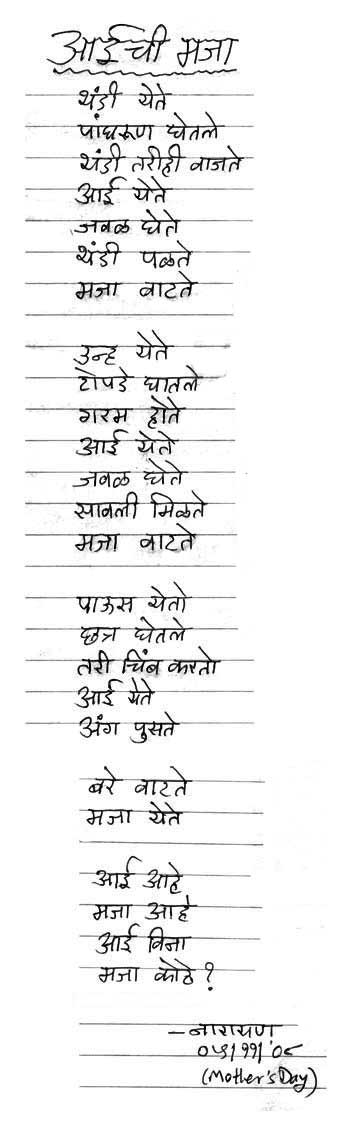 आईची मजा
थंडी येते
पांघरूण घेतले
थंडी तरीही वाजते
आई येते
जवळ घेते
थंडी पळते
मजा वाटते
उन्ह येते
टोपडे घातले
गरम होते
आई येते
जवळ घेते
सावली मिळते
मजा वाटते
पाऊस येतो
छत्र घेतले
तरी चिंब करतो
आई येते
अंग पुसते
बरे वाटते
मजा येते
आई आहे
मजा आहे
आई विना
मजा कोठे?
—नारायण
(Mother's Day)